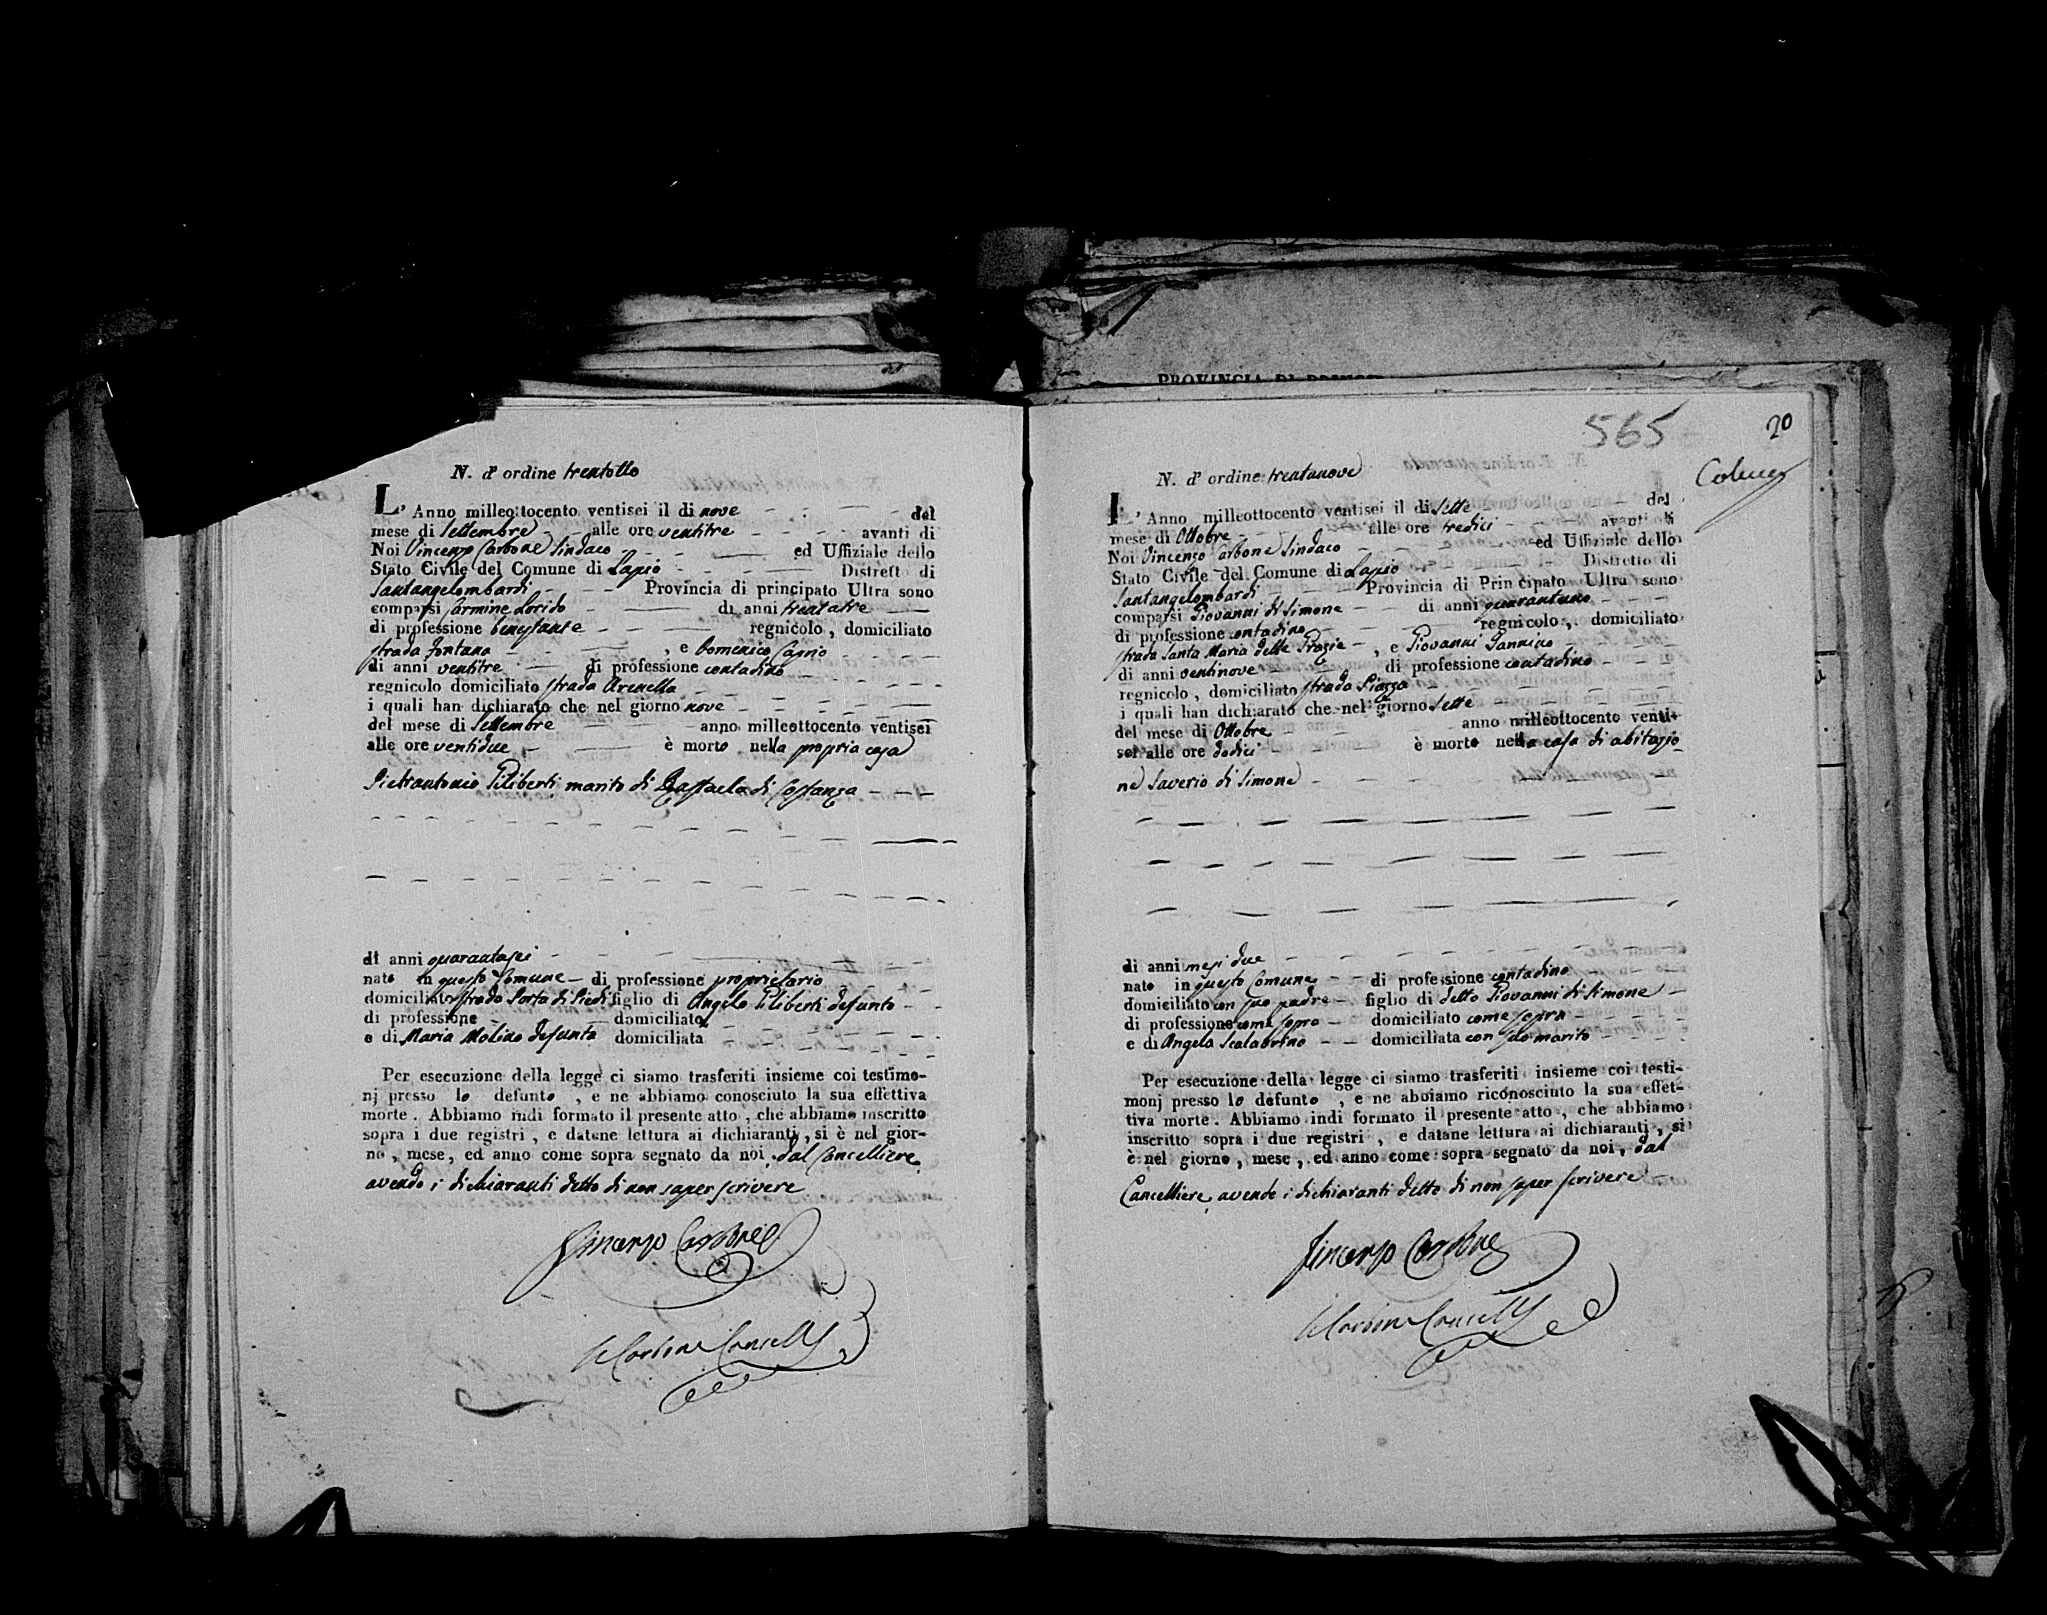 N. d' ordine trentotto
L' Anno milleottocento ventisei il dì nove del
mese di Settembre alle ore ventitre avanti di
Noi Vincenzo Carbone Sindaco ed Uffiziale dello
Stato Civile del Comune di Lapio Distrett di
Santangelombardi Provincia di principato Ultra sono
comparsi Carmine Lorido di anni trentatre
di professione benestante regnicolo, domiciliato
strada Fontana, e Domenico Caprio
di anni ventitre di professione contadino
regnicolo domiciliato strada Arenella
i quali han dichiarato che nel giorno nove
del mese di Settembre anno milleottocento ventisei
alle ore ventidue è morto nella propria casa
Pietrantonio Filiberti marito di Raffaela di Costanza
di anni quarantasei
nato in questo Comune di professione proprietario
domiciliato strada Porta di Piedi figlio di Angelo Filiberti defunto
di professione domiciliato
e di Maria Molino defunta domiciliata
Per esecuzione della legge ci siamo trasferiti insieme coi testimo-
nj presso lo defunto, e ne abbiamo conosciuto la sua effettiva
morte. Abbiamo indi formato il presente atto, che abbiamo inscritto
sopra i due registri, e datane lettura ai dichiaranti, si è nel gior-
no, mese, ed anno come sopra segnato da noi, dal Cancelliere
avendo i dichiaranti detto di non saper scrivere
Vincenzo Carbone
Carbone Cancell
PROVINCIA DI
565
20
N. d' ordine trentanove
L' Anno milleottocento ventisei il dì Sette del
mese di Ottobre alle ore tredici avanti di
Noi Vincenzo Carbone Sindaco ed Uffiziale dello
Stato Civile del Comune di Lapio Distretto di
Santangelombardi Provincia di Principato Ultra sono
comparsi Giovanni di Simone di anni quarantuno
di professione contadino regnicolo, domiciliato
strada Santa Maria delle Grazie, e Giovanni Iannino
di anni ventinove di professione contadino
regnicolo, domiciliato strada Piazza
i quali han dichiarato che nel giorno Sette
del mese di Ottobre anno milleottocento venti-
sei alle ore dodici è morto nella casa di abitazio
ne Saverio di Simone
di anni mesi due
nato in questo Comune di professione contadino
domiciliato con suo padre figlio di detto Giovanni di Simone
di professione come sopra domiciliato come sopra
e di Angela Scalabrino domiciliata con suo marito
Per esecuzione della legge ci siamo trasferiti insieme coi testi-
monj presso lo defunto, e ne abbiamo riconosciuto la sua effet-
tiva morte. Abbiamo indi formato il presente atto, che abbiamo
inscritto sopra i due registri, e datane lettura ai dichiaranti, si
è nel giorno, mese, ed anno come sopra segnato da noi, dal
Cancelliere avendo i dichiaranti detto di non saper scrivere
Vincenzo Carbone
Carbone Cancell